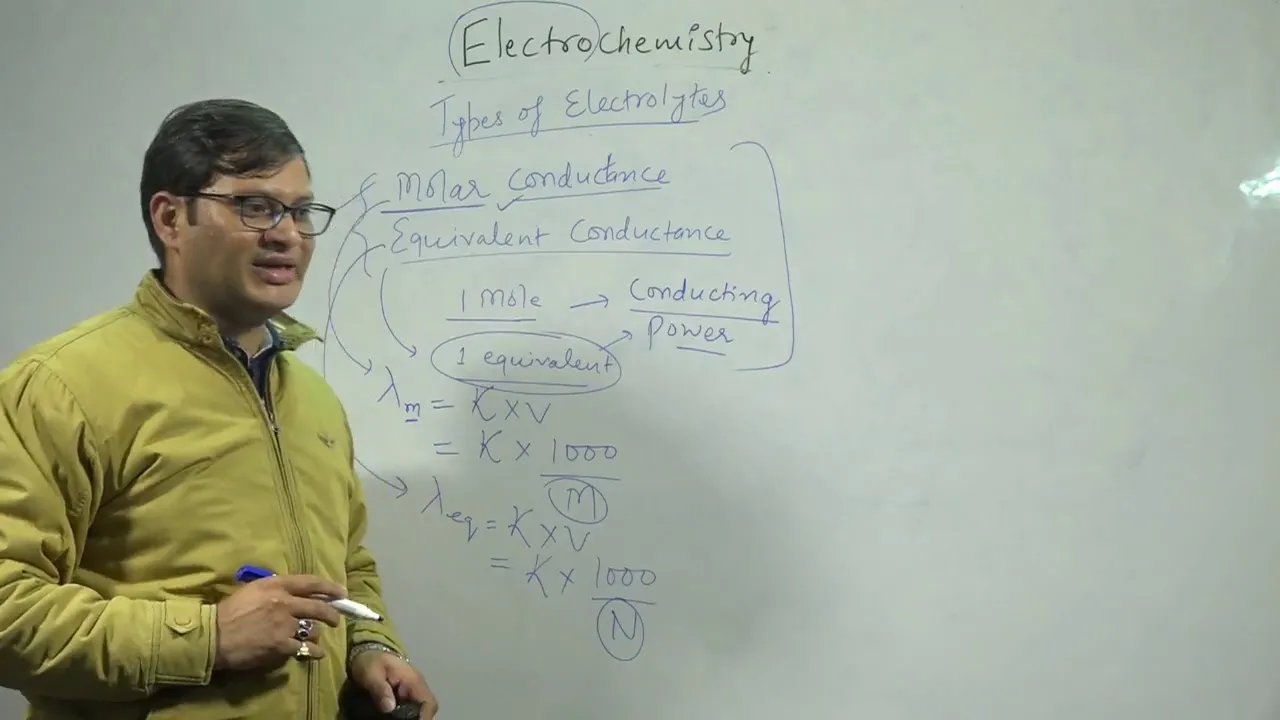 Electrochemistry
Types of Electrolytes
Molar conductance
Equivalent Conductance
1 Mole → Conducting
Power
1 equivalent
λm = K × V
= K × 1000
M
λeq = K × V
= K × 1000
N